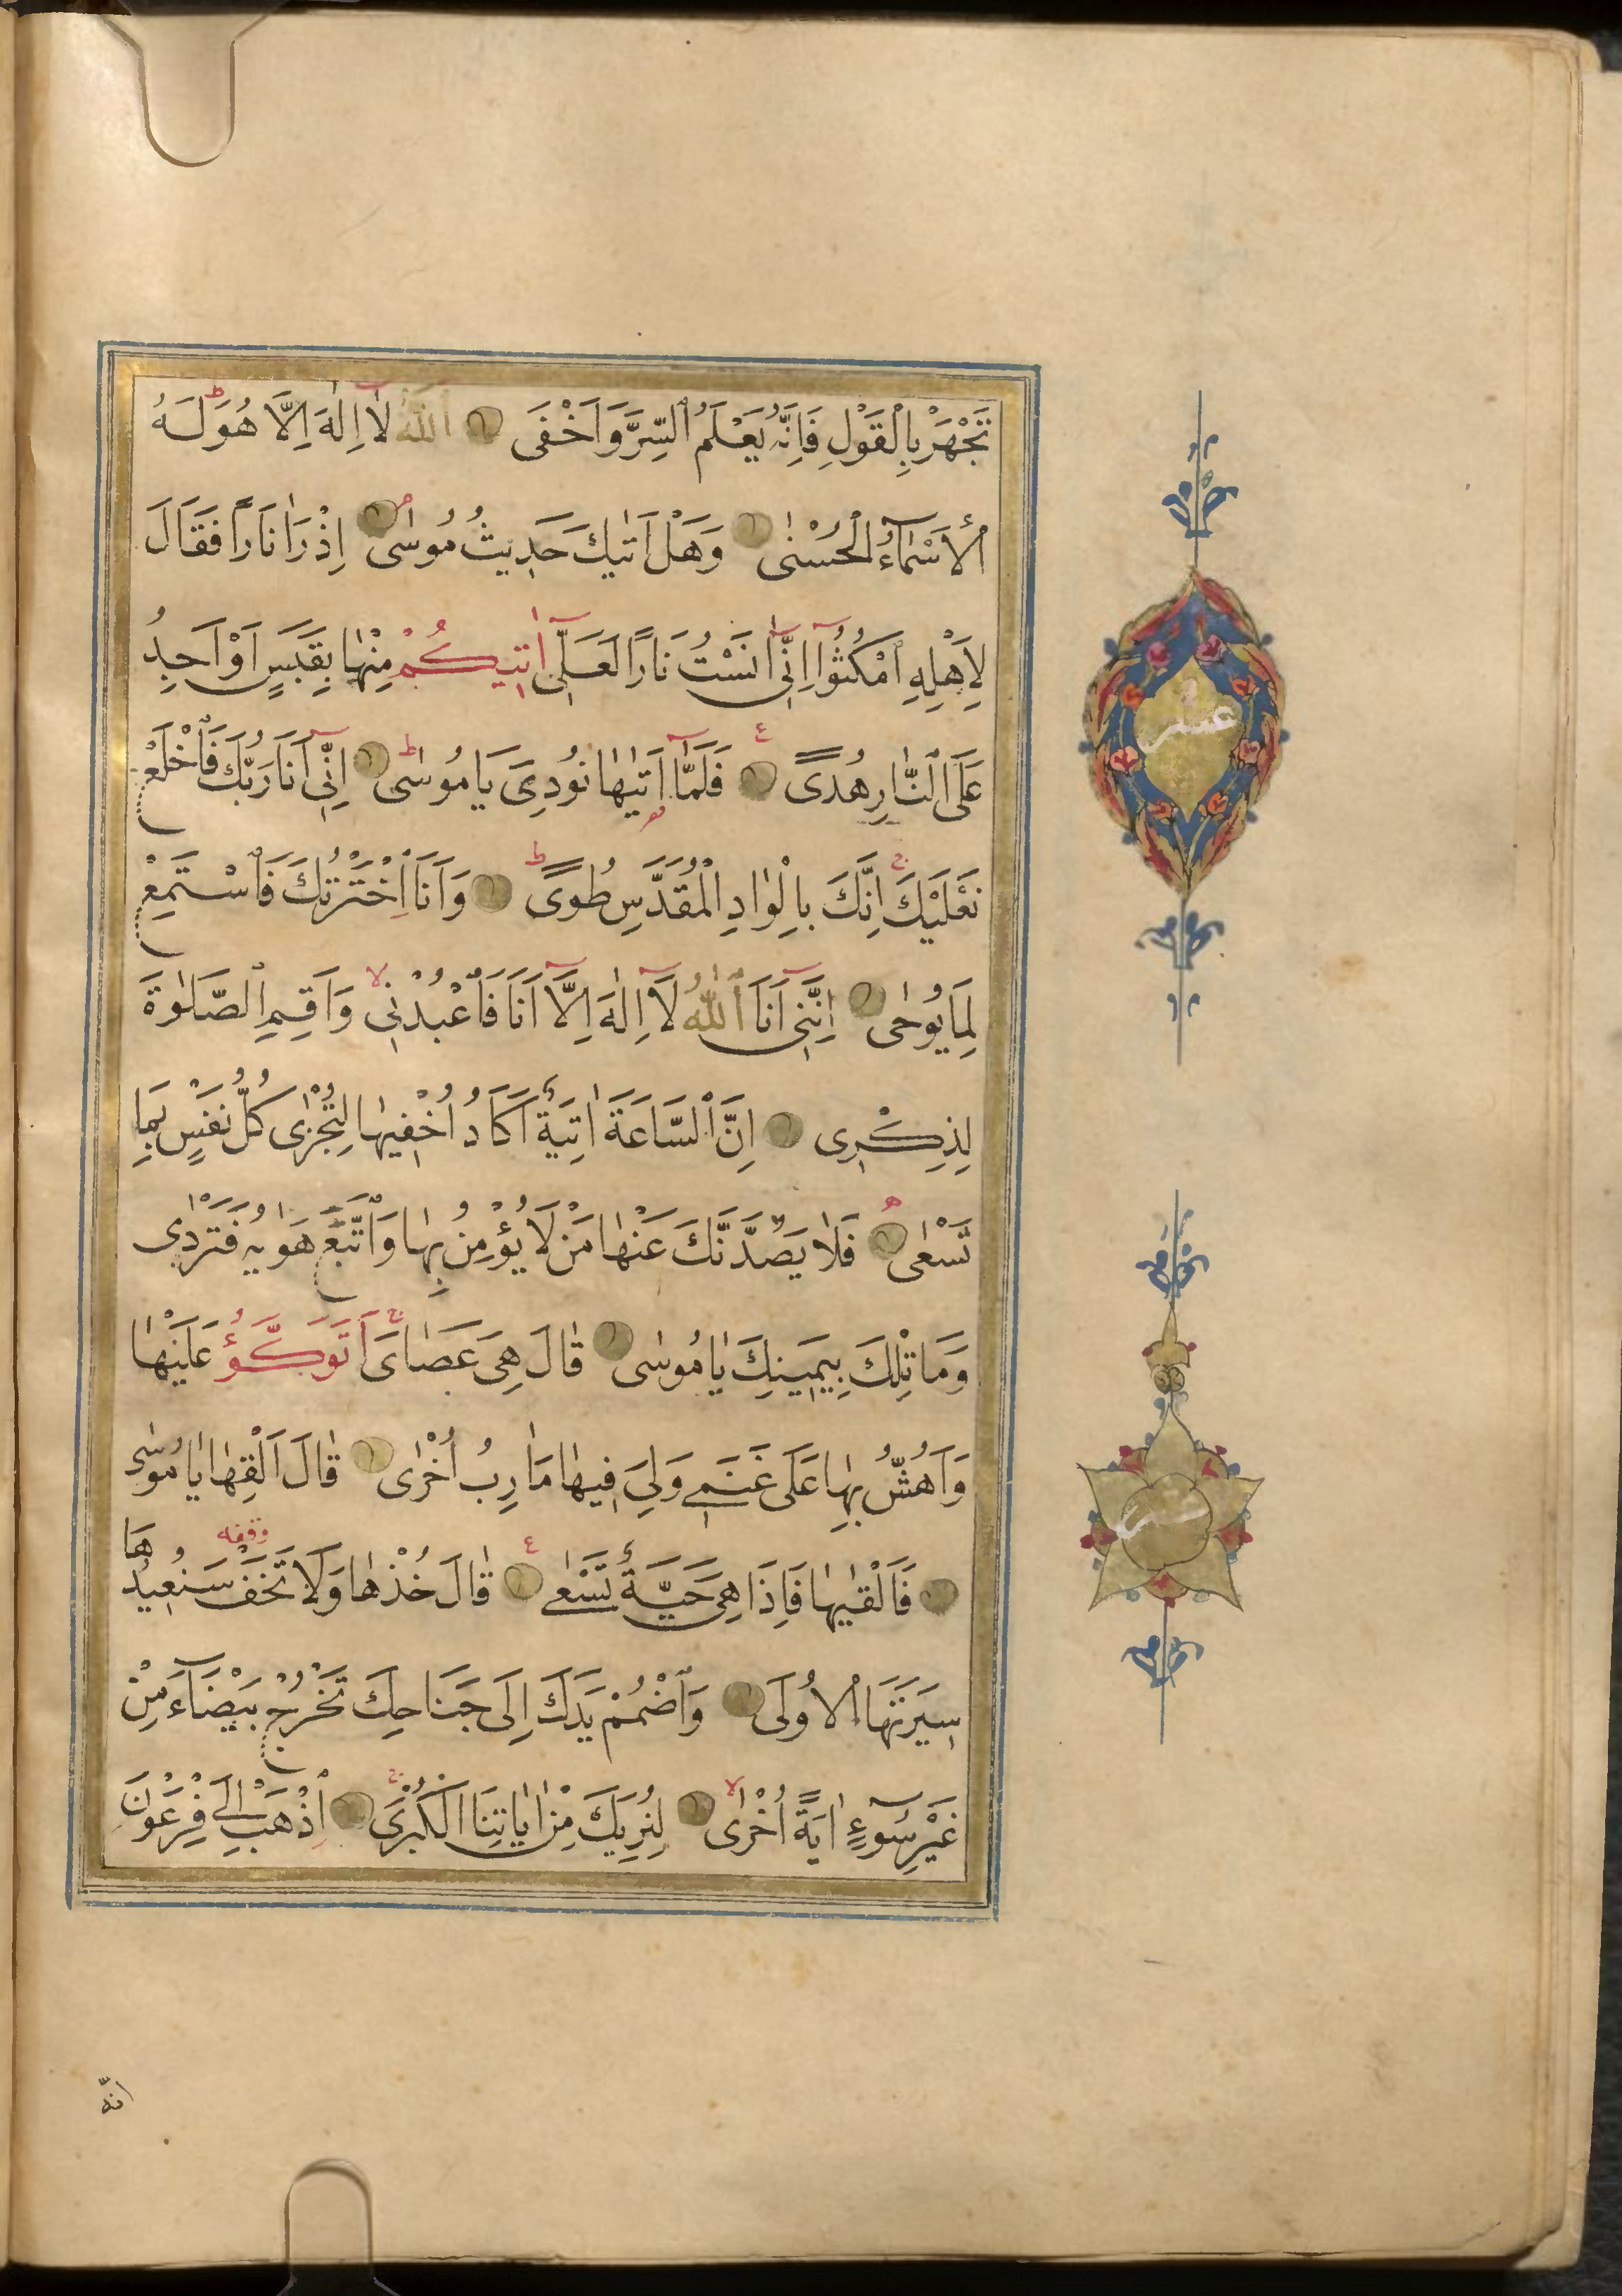 تَجْهَرْ بِالْقَوْلِ فَاِنَّهُ يَعْلَمُ السِّرَّ وَاَخْفَى اَللّٰهُ لَا اِلٰهَ اِلَّا هُوَ ط لَهُ
الْاَسْمَآءُ الْحُسْنٰى وَهَلْ اَتٰيكَ حَدِيثُ مُوسٰى م اِذْ رَاٰ نَارًا فَقَالَ
لِاَهْلِهِ امْكُثُوٓا اِنِّىٓ اٰنَسْتُ نَارًا لَعَلِّىٓ اٰتِيكُمْ مِنْهَا بِقَبَسٍ اَوْ اَجِدُ
عَلَى النَّارِ هُدًى ع فَلَمَّآ اَتٰيهَا نُودِىَ يَا مُوسٰى ط اِنِّىٓ اَنَا رَبُّكَ فَاخْلَعْ
نَعْلَيْكَ ج اِنَّكَ بِالْوَادِ الْمُقَدَّسِ طُوًى ط وَاَنَا اخْتَرْتُكَ فَاسْتَمِعْ
لِمَا يُوحٰى اِنَّنِىٓ اَنَا اللّٰهُ لَآ اِلٰهَ اِلَّآ اَنَا فَاعْبُدْنِى لا وَاَقِمِ الصَّلٰوةَ
لِذِكْرِى اِنَّ السَّاعَةَ اٰتِيَةٌ اَكَادُ اُخْفِيهَا لِتُجْزٰى كُلُّ نَفْسٍ بِمَا
تَسْعٰى ه فَلَا يَصُدَّنَّكَ عَنْهَا مَنْ لَا يُؤْمِنُ بِهَا وَاتَّبَعَ هَوٰيهُ فَتَرْدٰى
وَمَا تِلْكَ بِيَمِينِكَ يَا مُوسٰى قَالَ هِىَ عَصَاىَ ج اَتَوَكَّؤُ عَلَيْهَا
وَاَهُشُّ بِهَا عَلَى غَنَمِى وَلِىَ فِيهَا مَاٰرِبُ اُخْرٰى قَالَ اَلْقِهَا يَا مُوسٰى
فَاَلْقٰيهَا فَاِذَا هِىَ حَيَّةٌ تَسْعٰى ع قَالَ خُذْهَا وَلَا تَخَفْ وقفه سَنُعِيدُهَا
سِيرَتَهَا الْاُولَى وَاضْمُمْ يَدَكَ اِلَى جَنَاحِكَ تَخْرُجْ بَيْضَآءَ مِنْ
غَيْرِ سُوٓءٍ اٰيَةً اُخْرٰى لا لِنُرِيَكَ مِنْ اٰيَاتِنَا الْكُبْرَى ج اِذْهَبْ اِلَى فِرْعَوْنَ
انّه
عشر
عشر